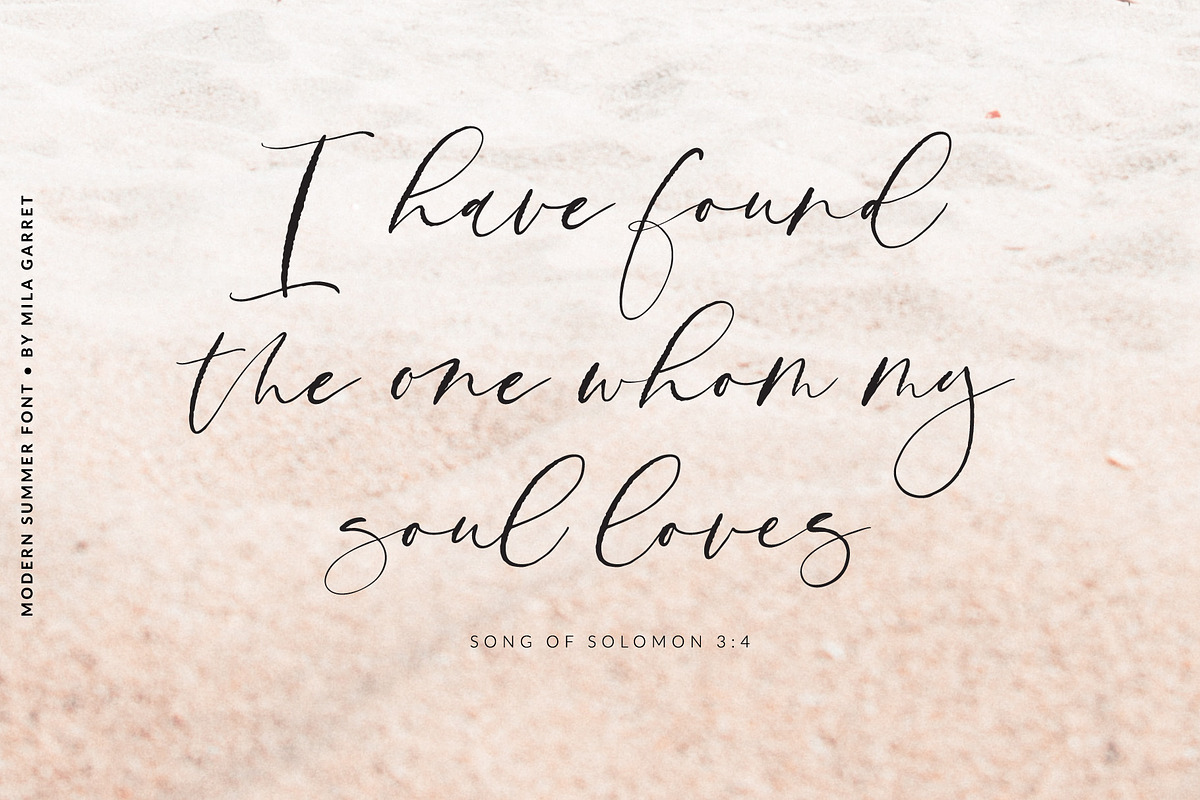 I have found
the one whom my
soul loves
SONG OF SOLOMON 3:4
MODERN SUMMER FONT • BY MILA GARRET